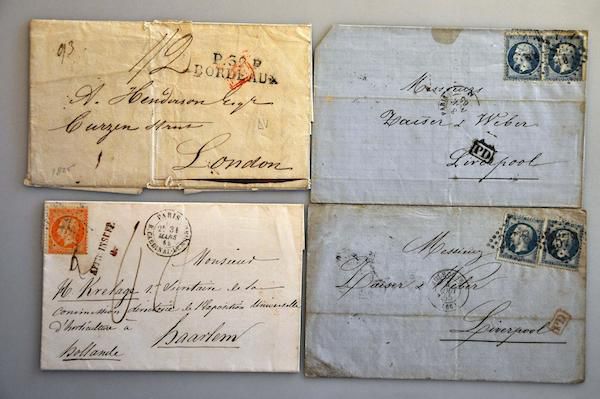 93
1/2
P.32.P
BORDEAUX
A. Henderson Esqr
Curzon Street
London
Messieurs
Zaiser & Weber
Liverpool
PD
AFFR. INSUFF.
PARIS
31
MARS
Monsieur
H. Krelage, Secrétaire de la
commission directrice de l'Exposition Universelle
d'horticulture à
Haarlem
Hollande
Messieurs
Zaiser & Weber
Liverpool
PD